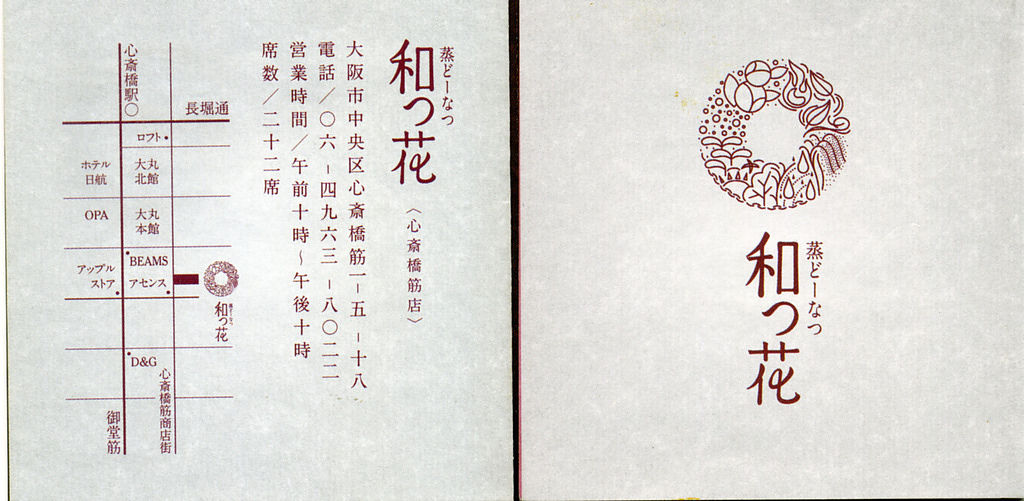 蒸どーなつ
和つ花
〈心斎橋筋店〉
大阪市中央区心斎橋筋一ー五ー十八
電話/〇六ー四九六三ー八〇二二
営業時間/午前十時〜午後十時
席数/二十二席
心斎橋駅〇
長堀通
ロフト
ホテル
日航
大丸
北館
OPA
大丸
本館
BEAMS
アップル
ストア
アセンス
蒸どーなつ
和つ花
D&G
心斎橋筋商店街
御堂筋
蒸どーなつ
和つ花